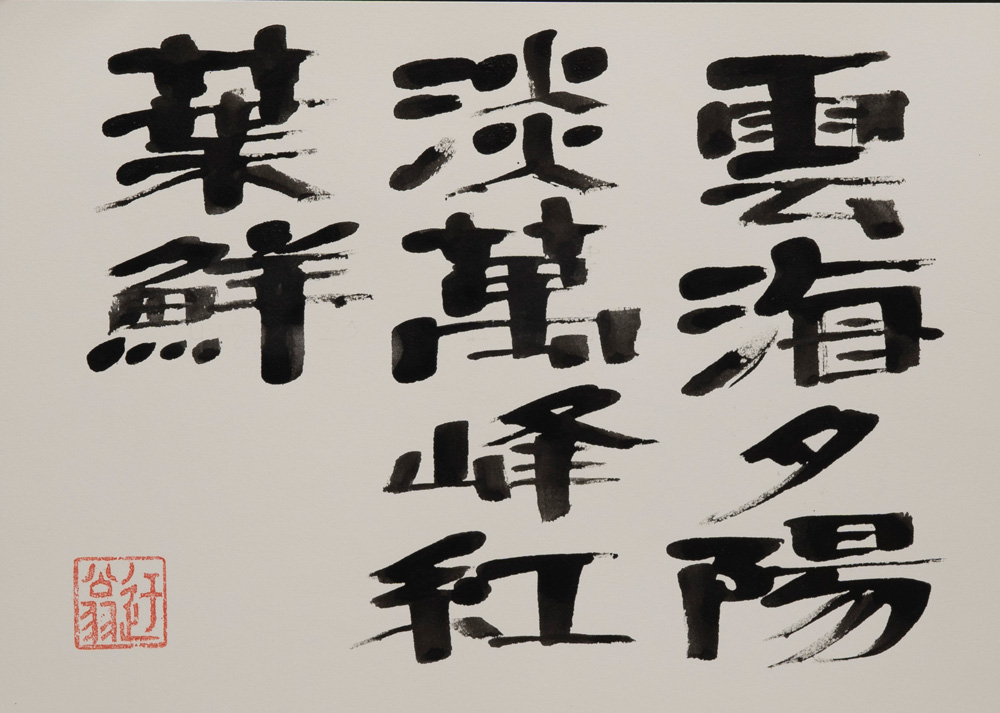 雲海夕陽
淡萬峰紅
葉鮮